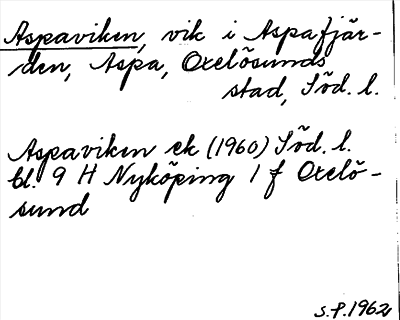 Aspaviken, vik i Aspafjär-
den, Aspa, Oxelösunds
stad, Söd. l.
Aspaviken ek (1960) Söd. l.
bl. 9 H Nyköping 1 f Oxelö-
sund
S.P. 1962